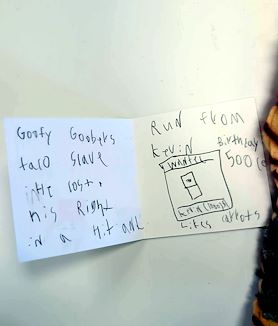 Goofy Goobers
taco slave
he lost
his Right
in a hit and
RUN from
kevin
Birthday
wanted
500
Likes carrots